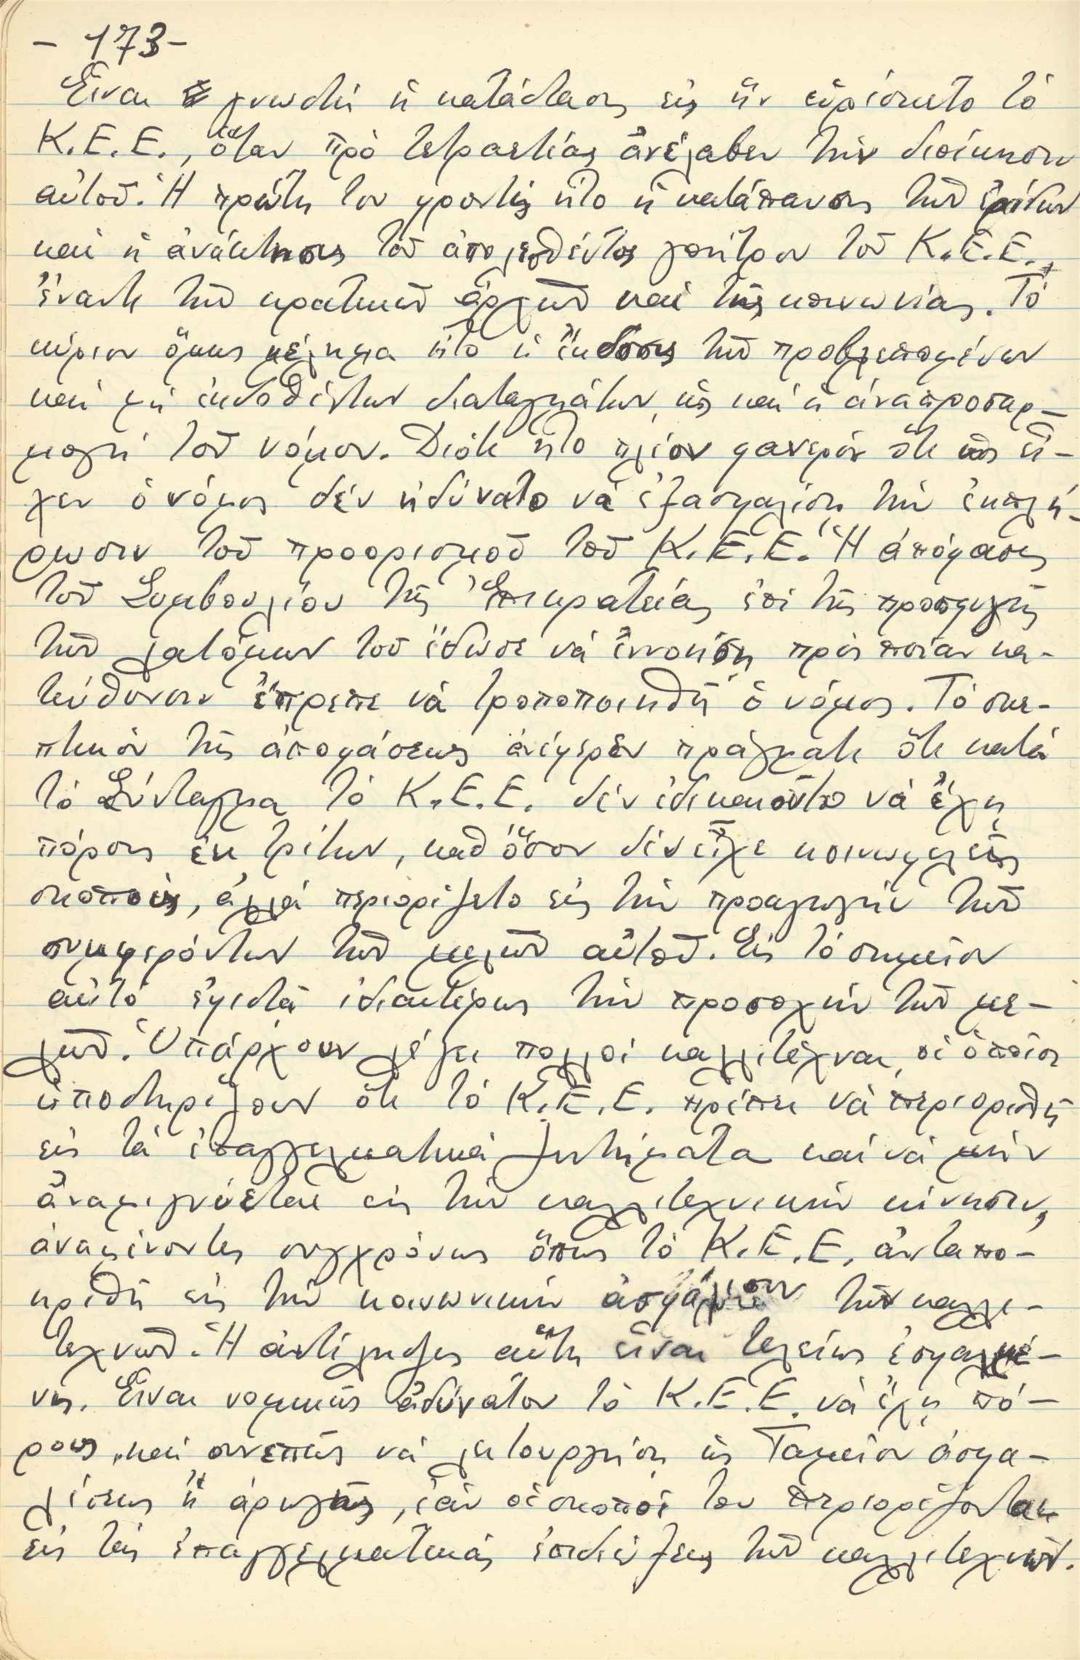 - 173 -
Εἶναι γνωστὴ ἡ κατάστασις εἰς ἣν εὑρίσκετο τὸ
Κ.Ε.Ε., ὅταν πρὸ τετραετίας ἀνέλαβεν τὴν διοίκησιν
αὐτοῦ. Ἡ πρώτη του φροντὶς ἦτο ἡ κατάπαυσις τῶν ἐρίδων
καὶ ἡ ἀνάκτησις τοῦ ἀπολεσθέντος γοήτρου τοῦ Κ.Ε.Ε.,
ἔναντι τῶν κρατικῶν ἀρχῶν καὶ τῆς κοινωνίας. Τὸ
κύριον ὅμως μέλημα ἦτο ἡ ἔκδοσις τῶν προβλεπομένων
καὶ μὴ ἐκδοθέντων διαταγμάτων, ὡς καὶ ἡ ἀναπροσαρ-
μογὴ τοῦ νόμου. Διότι ἦτο πλέον φανερὸν ὅτι ὡς εἶ-
χεν ὁ νόμος δὲν ἠδύνατο νὰ ἐξασφαλίσῃ τὴν ἐκπλή-
ρωσιν τοῦ προορισμοῦ τοῦ Κ.Ε.Ε. Ἡ ἀπόφασις
τοῦ Συμβουλίου τῆς Ἐπικρατείας ἐπὶ τῆς προσφυγῆς
τῶν λατόμων τοῦ ἔδωσε νὰ ἐννοήσῃ πρὸς ποίαν κα-
τεύθυνσιν ἔπρεπε νὰ τροποποιηθῇ ὁ νόμος. Τὸ σκε-
πτικὸν τῆς ἀποφάσεως ἀνέφερεν πράγματι ὅτι κατὰ
τὸ Σύνταγμα τὸ Κ.Ε.Ε. δὲν ἐδικαιοῦτο νὰ ἔχῃ
πόρους ἐκ τρίτων, καθ' ὅσον δὲν εἶχε κοινωφελεῖς
σκοποὺς, ἀλλὰ περιορίζετο εἰς τὴν προαγωγὴν τῶν
συμφερόντων τῶν μελῶν αὐτοῦ. Εἰς τὸ σημεῖον
αὐτὸ ἐφιστᾶ ἰδιαιτέρως τὴν προσοχὴν τῶν με-
λῶν. Ὑπάρχουν λέγει πολλοὶ καλλιτέχναι, οἱ ὁποῖοι
ὑποστηρίζουν ὅτι τὸ Κ.Ε.Ε. πρέπει νὰ περιορισθῇ
εἰς τὰ ἐπαγγελματικὰ ζητήματα καὶ νὰ μὴν
ἀναμιγνύεται εἰς τὴν καλλιτεχνικὴν κίνησιν,
ἀναμένοντες συγχρόνως ὅπως τὸ Κ.Ε.Ε. ἀνταπο-
κριθῇ εἰς τὴν κοινωνικὴν ἀσφάλισιν τῶν καλλι-
τεχνῶν. Ἡ ἀντίληψις αὕτη εἶναι τελείως ἐσφαλμέ-
νη. Εἶναι νομικῶς ἀδύνατον τὸ Κ.Ε.Ε. νὰ ἔχῃ πό-
ρους, καὶ συνεπῶς νὰ λειτουργήσῃ ὡς Ταμεῖον ἀσφα-
λίσεως ἢ ἀρωγῆς, ἐὰν οἱ σκοποί του περιορίζονται
εἰς τὰς ἐπαγγελματικὰς ἐπιδιώξεις τῶν καλλιτεχνῶν.